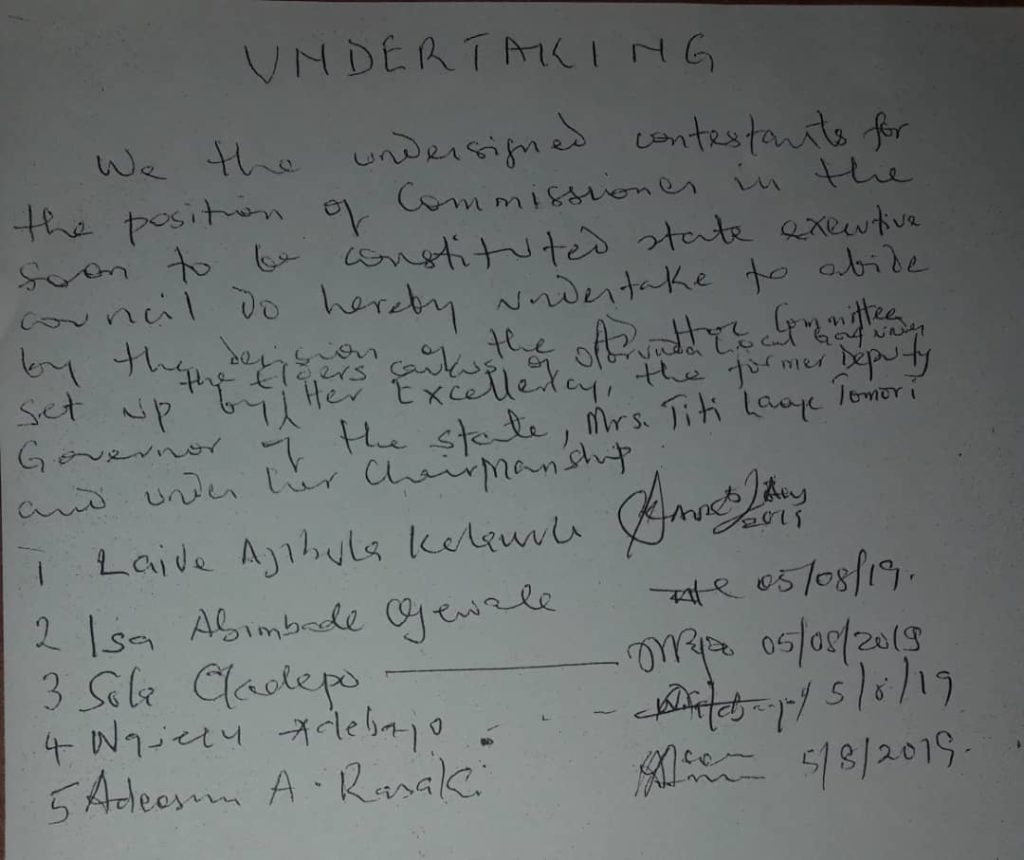 UNDERTAKING
We the undersigned contestants for
the position of Commissioner in the
soon to be constituted state executive
council do hereby undertake to abide
by the decision of the Ad Hoc Committee
the Elders caukus of Local Government
set up by Her Excellency, the former Deputy
Governor of the state, Mrs. Titi Laoye Tomori
and under her Chairmanship
1 Ajibola 2019
2 Isa Abimbade Oyewale 05/08/19.
3 Sola Oladepo 05/08/2019
4 Adebajo 5/8/19
5 Adeosun A. Rasaki 5/8/2019.